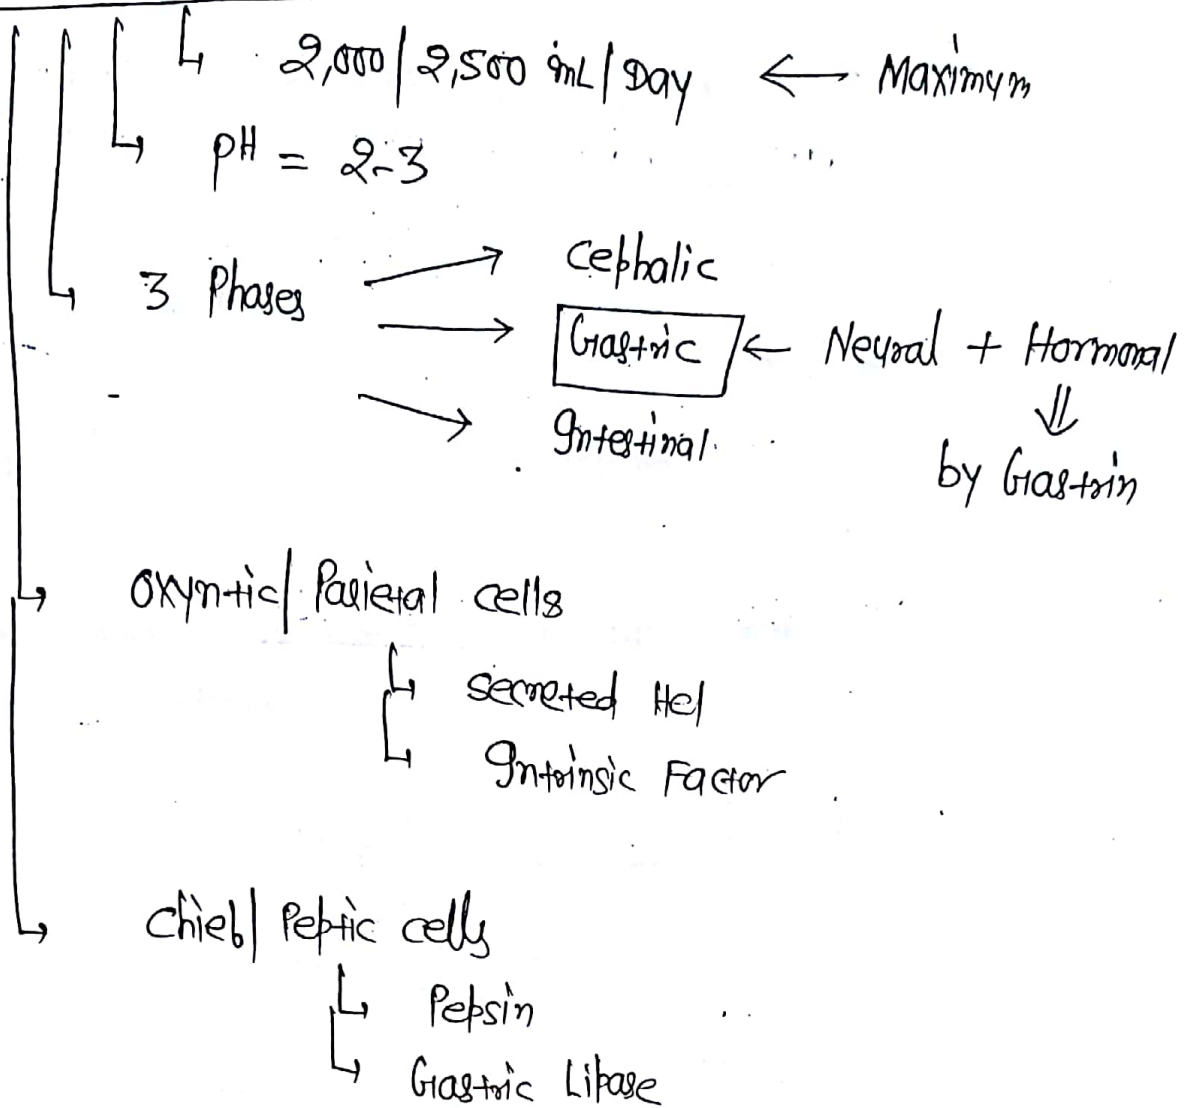 2,000/2,500 mL/Day ← Maximum
pH = 2-3
3 Phases → Cephalic
→ Gastric ← Neural + Hormonal
⇓
→ Intestinal
by Gastrin
Oxyntic/Parietal cells
Secreted Hcl
Intrinsic Factor
Chief/Peptic cells
Pepsin
Gastric Lipase